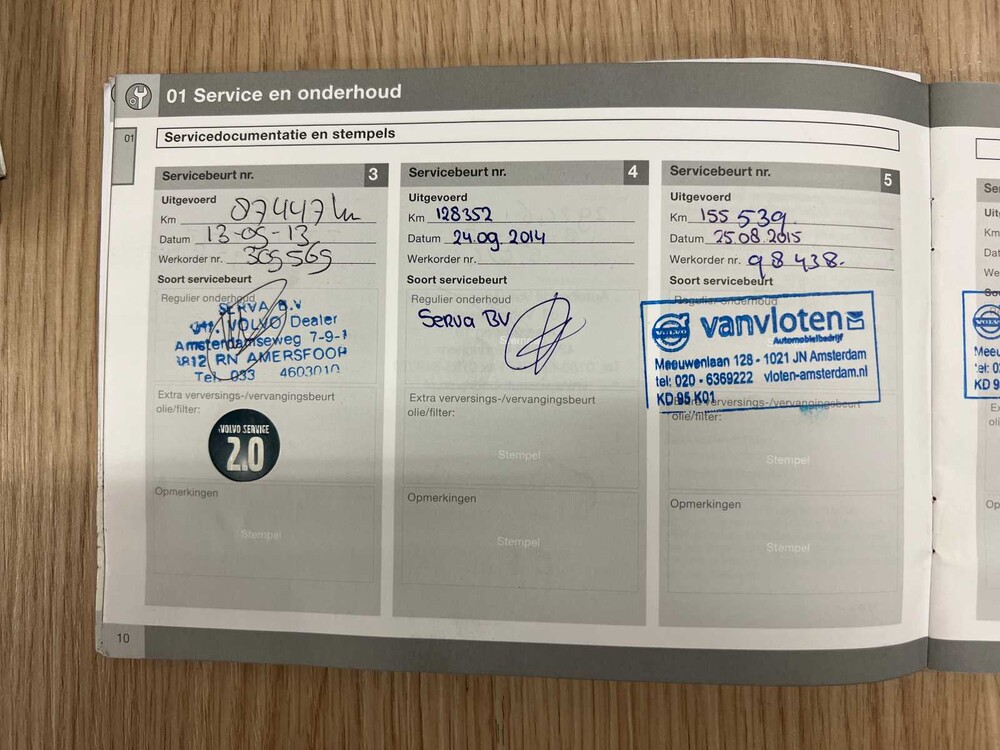 01 Service en onderhoud
01
Servicedocumentatie en stempels
Servicebeurt nr. 3
Uitgevoerd
Km 87447 km
Datum 13-05-13
Werkorder nr. 309569
Soort servicebeurt
Regulier onderhoud
SERVA B.V.
VOLVO Dealer
Amsterdamseweg 7-9-
RN AMERSFOOR
Tel. 033 4603010
Extra verversings-/vervangingsbeurt
olie/filter:
VOLVO SERVICE
2.0
Opmerkingen
Stempel
Servicebeurt nr. 4
Uitgevoerd
Km 128352
Datum 24.09.2014
Werkorder nr.
Soort servicebeurt
Regulier onderhoud
Serva BV
Extra verversings-/vervangingsbeurt
olie/filter:
Stempel
Opmerkingen
Stempel
Servicebeurt nr. 5
Uitgevoerd
Km 155 539
Datum 25.08.2015
Werkorder nr. 98438.
Soort servicebeurt
Regulier onderhoud
VOLVO
vanvloten
Automobielbedrijf
Meeuwenlaan 128 - 1021 JN Amsterdam
tel: 020 - 6369222 vloten-amsterdam.nl
KD 95 K01
Extra verversings-/vervangingsbeurt
olie/filter:
Stempel
Opmerkingen
Stempel
10
Ser
Uit
Km
Dat
We
Soo
Meeu
tel: 02
KD 9
Ex
oli
Op